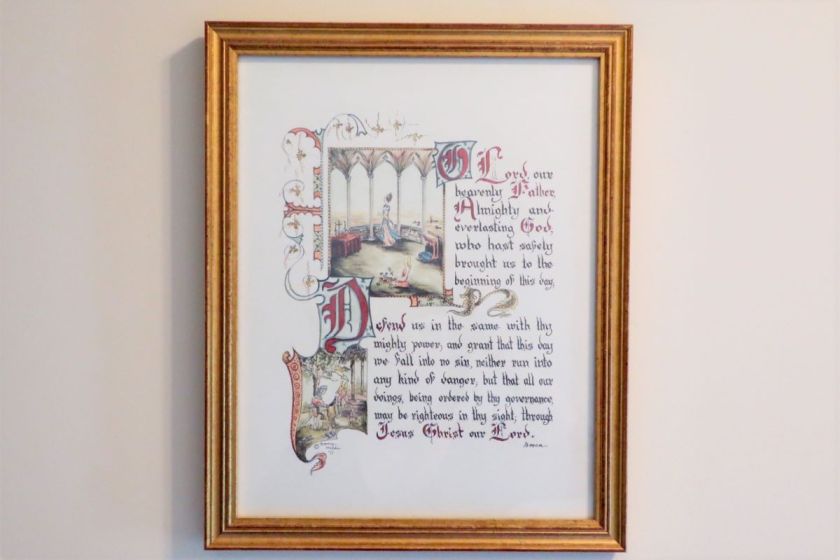 O Lord, our
heavenly Father,
Almighty and
everlasting God,
who hast safely
brought us to the
beginning of this day;
Defend us in the same with thy
mighty power; and grant that this day
we fall into no sin, neither run into
any kind of danger; but that all our
doings, being ordered by thy governance,
may be righteous in thy sight; through
Jesus Christ our Lord.